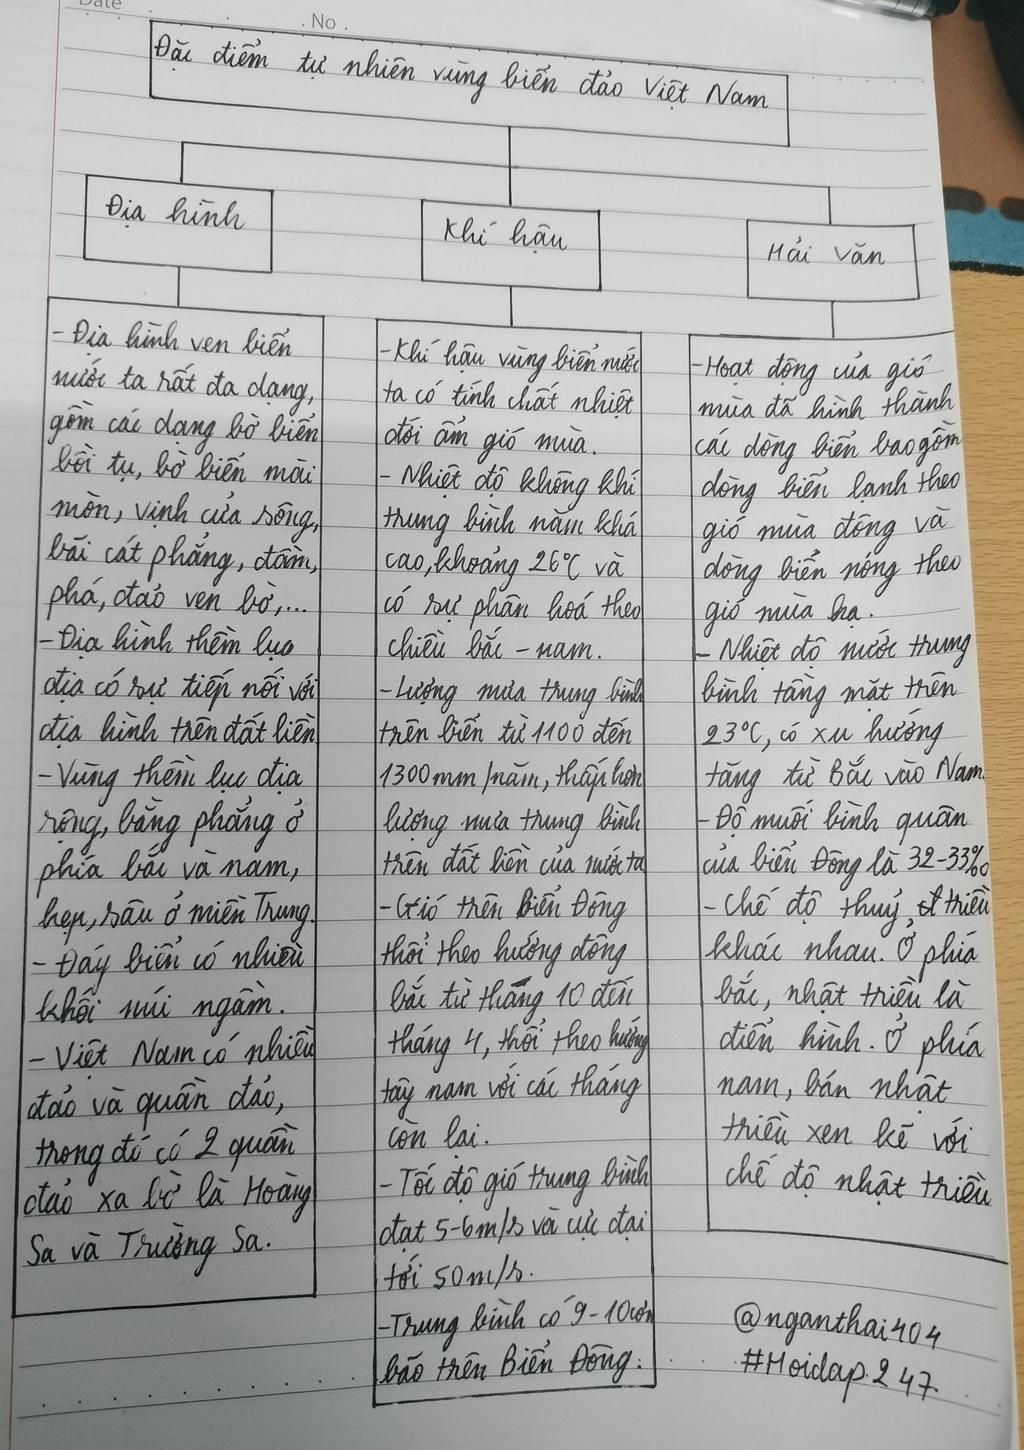 Date
No
Đặc điểm tự nhiên vùng biển đảo Việt Nam
Địa hình
Khí hậu
Hải văn
- Địa hình ven biển
nước ta rất đa dạng,
gồm các dạng bờ biển
bồi tụ, bờ biển mài
mòn, vịnh cửa sông,
bãi cát phẳng, đầm,
phá, đảo ven bờ,...
- Địa hình thềm lục
địa có sự tiếp nối với
địa hình trên đất liền
- Vùng thềm lục địa
rộng, bằng phẳng ở
phía bắc và nam,
hẹp, sâu ở miền Trung.
- Đáy biển có nhiều
khối núi ngầm.
- Việt Nam có nhiều
đảo và quần đảo,
trong đó có 2 quần
đảo xa bờ là Hoàng
Sa và Trường Sa.
- Khí hậu vùng biển nước
ta có tính chất nhiệt
đới ẩm gió mùa.
- Nhiệt độ không khí
trung bình năm khá
cao, khoảng 26°C và
có sự phân hoá theo
chiều bắc - nam.
- Lượng mưa trung bình
trên biển từ 1100 đến
1300mm/năm, thấp hơn
lượng mưa trung bình
trên đất liền của nước ta
- Gió trên Biển Đông
thổi theo hướng đông
bắc từ tháng 10 đến
tháng 4, thổi theo hướng
tây nam với các tháng
còn lại.
- Tốc độ gió trung bình
đạt 5-6m/s và cực đại
tới 50m/s.
- Trung bình có 9-10 cơn
bão trên Biển Đông.
- Hoạt động của gió
mùa đã hình thành
các dòng biển bao gồm
dòng biển lạnh theo
gió mùa đông và
dòng biển nóng theo
gió mùa hạ.
- Nhiệt độ nước trung
bình tầng mặt trên
23°C, có xu hướng
tăng từ Bắc vào Nam.
- Độ muối bình quân
của biển Đông là 32-33‰
- Chế độ thuỷ triều
khác nhau. Ở phía
bắc, nhật triều là
điển hình. Ở phía
nam, bán nhật
triều xen kẽ với
chế độ nhật triều
@nganthai404
#Hoidap247